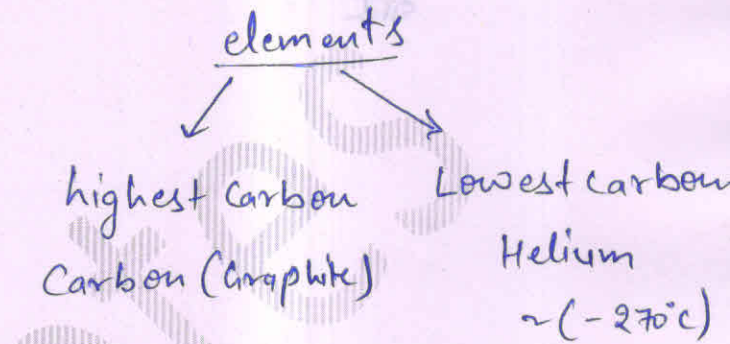 elements
highest Carbon
Carbon (Graphite)
Lowest Carbon
Helium
~(-270°C)